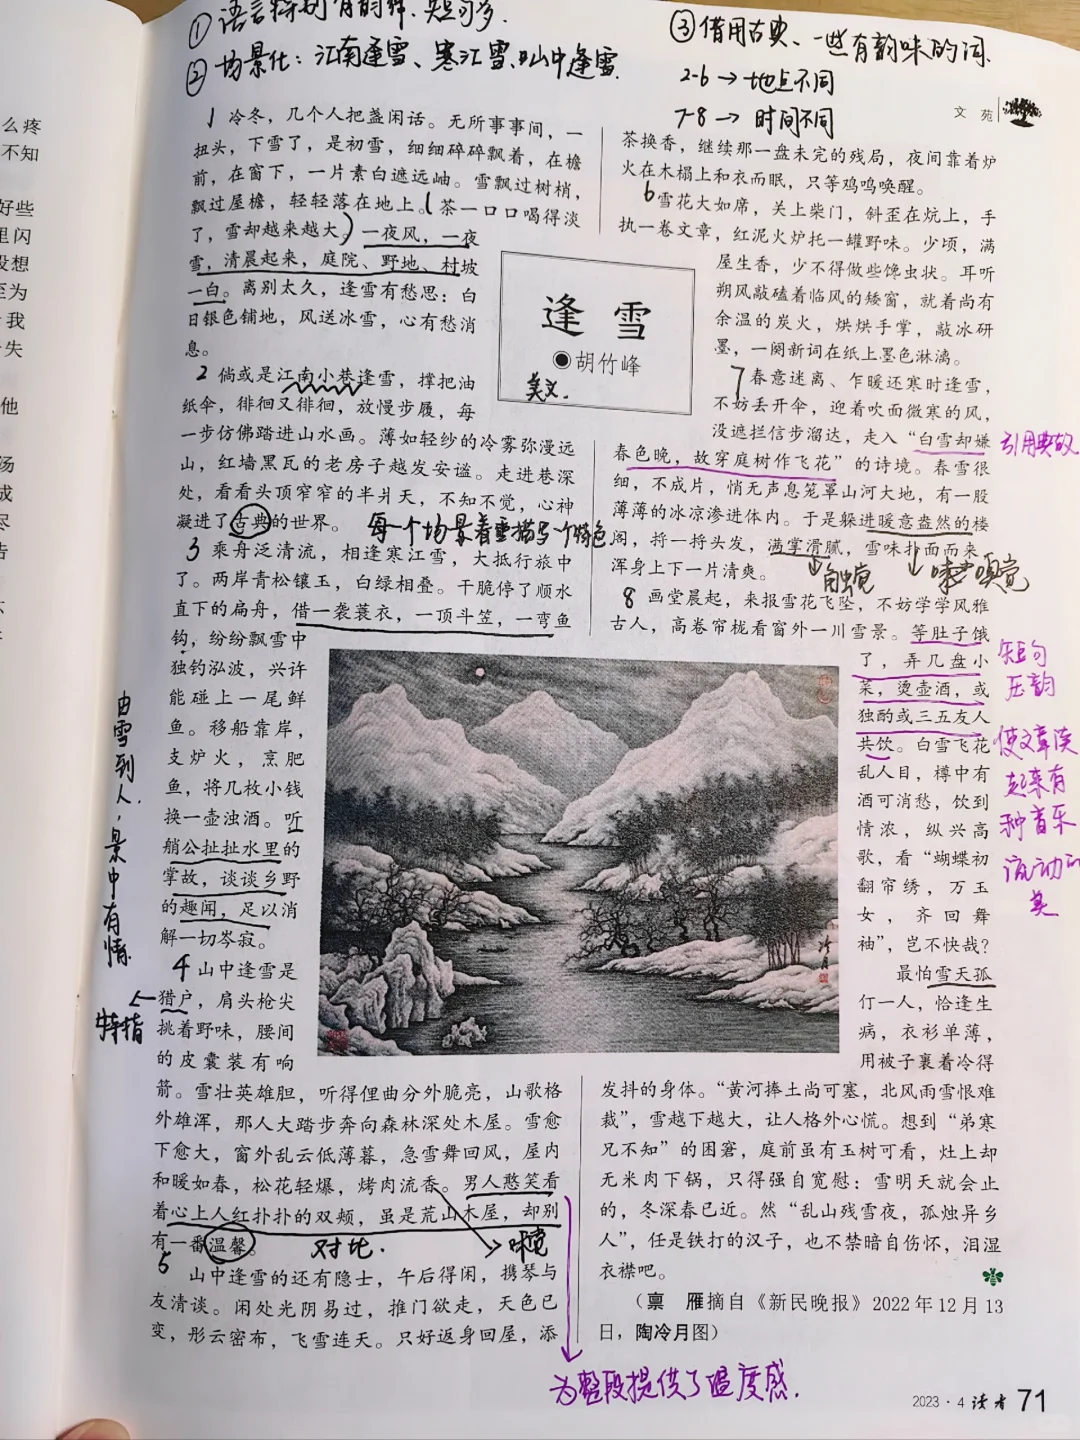 ①语言特别有韵律.短句多.
②场景化：江南逢雪、寒江雪、山中逢雪.
③借用古典、一些有韵味的词.
2-6→地点不同
7-8→时间不同
文 苑
么疼
不知
好些
里闪
没想
至为
我
失
他
扬
成
尽
告
1 冷冬，几个人把盏闲话。无所事事间，一
扭头，下雪了，是初雪，细细碎碎飘着，在檐
前，在窗下，一片素白遮远岫。雪飘过树梢，
飘过屋檐，轻轻落在地上。茶一口口喝得淡
了，雪却越来越大。一夜风，一夜
雪，清晨起来，庭院、野地、村坡
一白。离别太久，逢雪有愁思：白
日银色铺地，风送冰雪，心有愁消
息。
逢 雪
●胡竹峰
美文.
2 倘或是江南小巷逢雪，撑把油
纸伞，徘徊又徘徊，放慢步履，每
一步仿佛踏进山水画。薄如轻纱的冷雾弥漫远
山，红墙黑瓦的老房子越发安谧。走进巷深
处，看看头顶窄窄的半片天，不知不觉，心神
凝进了古典的世界。
每一个场景着重描写一个特色
3 乘舟泛清流，相逢寒江雪，大抵行旅中
了。两岸青松镶玉，白绿相叠。干脆停了顺水
直下的扁舟，借一袭蓑衣，一顶斗笠，一弯鱼
钩，纷纷飘雪中
独钓泓波，兴许
能碰上一尾鲜
鱼。移船靠岸，
支炉火，烹肥
鱼，将几枚小钱
换一壶浊酒。听
艄公扯扯水里的
掌故，谈谈乡野
的趣闻，足以消
解一切岑寂。
由雪到人，景中有情.
4 山中逢雪是
猎户，肩头枪尖
特指
挑着野味，腰间
的皮囊装有响
箭。雪壮英雄胆，听得俚曲分外脆亮，山歌格
外雄浑，那人大踏步奔向森林深处木屋。雪愈
下愈大，窗外乱云低薄暮，急雪舞回风，屋内
和暖如春，松花轻爆，烤肉流香。男人憨笑看
着心上人红扑扑的双颊，虽是荒山木屋，却别
有一番温馨。
对比.
味觉
5
山中逢雪的还有隐士，午后得闲，携琴与
友清谈。闲处光阴易过，推门欲走，天色已
变，彤云密布，飞雪连天。只好返身回屋，添
茶换香，继续那一盘未完的残局，夜间靠着炉
火在木榻上和衣而眠，只等鸡鸣唤醒。
6 雪花大如席，关上柴门，斜歪在炕上，手
执一卷文章，红泥火炉托一罐野味。少顷，满
屋生香，少不得做些馋虫状。耳听
朔风敲磕着临风的矮窗，就着尚有
余温的炭火，烘烘手掌，敲冰研
墨，一阕新词在纸上墨色淋漓。
7 春意迷离、乍暖还寒时逢雪，
不妨丢开伞，迎着吹面微寒的风，
没遮拦信步溜达，走入“白雪却嫌
春色晚，故穿庭树作飞花”的诗境。春雪很
引用典故
细，不成片，悄无声息笼罩山河大地，有一股
薄薄的冰凉渗进体内。于是躲进暖意盎然的楼
阁，捋一捋头发，满掌滑腻，雪味扑面而来，
浑身上下一片清爽。
触觉
味觉嗅觉
8 画堂晨起，来报雪花飞坠，不妨学学风雅
古人，高卷帘栊看窗外一川雪景。等肚子饿
了，弄几盘小
菜，烫壶酒，或
独酌或三五友人
共饮。白雪飞花
乱人目，樽中有
酒可消愁，饮到
情浓，纵兴高
歌，看“蝴蝶初
翻帘绣，万玉
女，齐回舞
袖”，岂不快哉？
短句
压韵
使文章读
起来有
种音乐
流动的
美
最怕雪天孤
仃一人，恰逢生
病，衣衫单薄，
用被子裹着冷得
发抖的身体。“黄河捧土尚可塞，北风雨雪恨难
裁”，雪越下越大，让人格外心慌。想到“弟寒
兄不知”的困窘，庭前虽有玉树可看，灶上却
无米肉下锅，只得强自宽慰：雪明天就会止
的，冬深春已近。然“乱山残雪夜，孤烛异乡
人”，任是铁打的汉子，也不禁暗自伤怀，泪湿
衣襟吧。
（禀　雁摘自《新民晚报》2022年12月13
日，陶冷月图）
为整段提供了温度感.
2023·4 读者 71
冷月